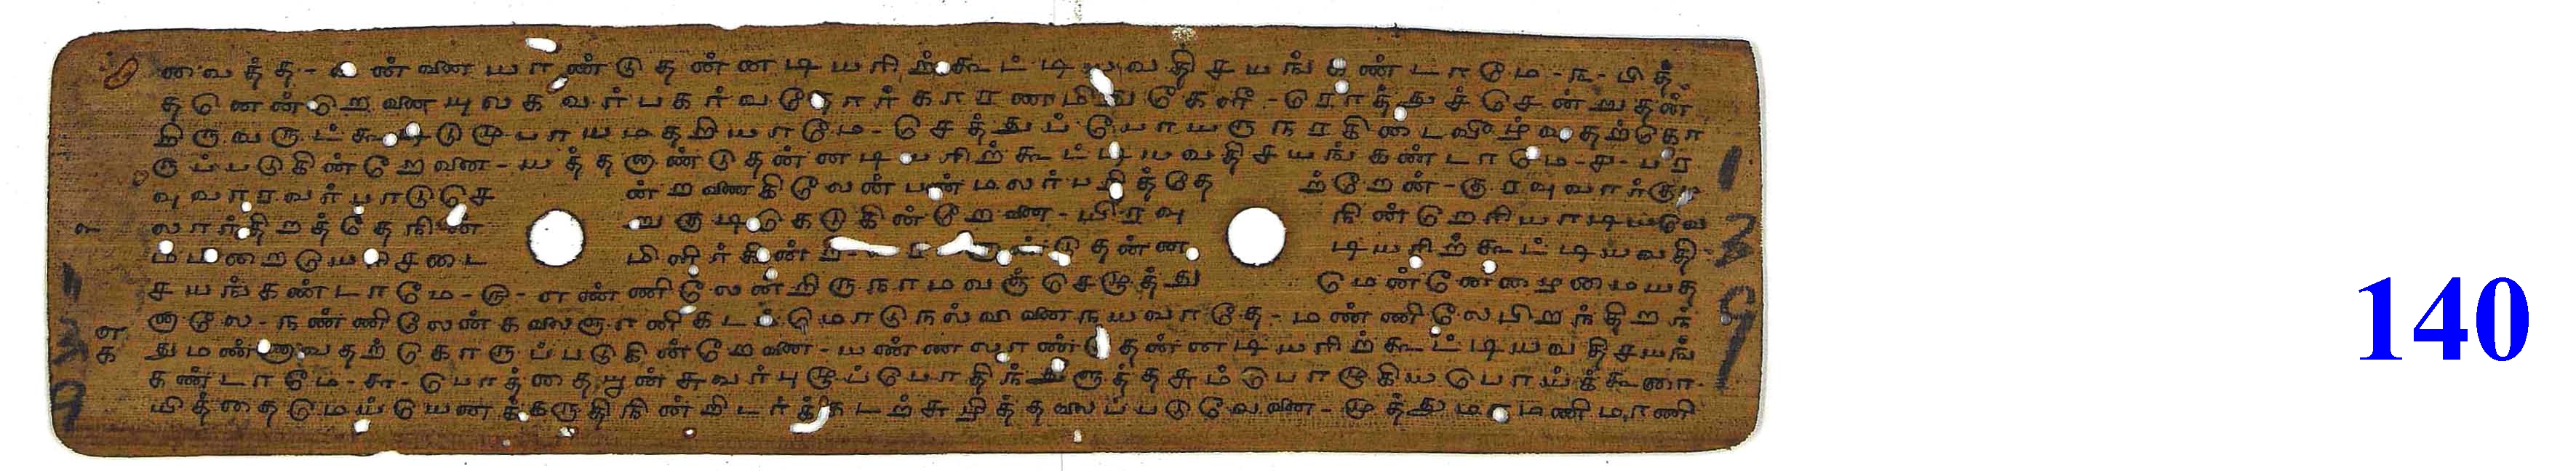 வைத்த-வன்னையாண்டுதன்னடியரிற்கூட்டியவதிசயங்கண்டாமே-௩-பித்
தனென்றெனையுலகவர்பகர்வதோர்காரணமிதுகேளீ-ரொத்துச்சென்றுதன்
றிருவருட்கூடிடுமுபாயமதறியாமே-செத்துப்போயருநரகிடைவீழ்வதற்கொ
ருப்படுகின்றேனை-யத்தனாண்டுதன்னடியரிற்கூட்டியவதிசயங்கண்டாமே-௪-பர
வுவாரவர்பாடுசென்றணைகிலேன்பன்மலர்பறித்தேத்தேன்-குரவுவார்குழ
லார்திறத்தேநின்றுகுடிகெடுகின்றேனை-யிரவுநின்றெரியாடியவெ
ம்மிறையெரிசடைமிளிர்கின்ற-வரவனாண்டுதன்னடியரிற்கூட்டியவதி-
சயங்கண்டாமே-௫-எண்ணிலேன்றிருநாமவஞ்செழுத்துமென்னேழைமையத
னாலே-நண்ணிலேன்கலைஞானிகடம்மொடுநல்வினைநயவாதே-மண்ணிலேபிறந்திறந்
துமண்ணாவதற்கொருப்படுகின்றேனை-யண்ணலாண்டுதன்னடியரிற்கூட்டியவதிசயங்
கண்டாமே-௬-பொத்தையூன்சுவர்புழுப்பொதிந்துளுத்தசும்பொழுகியபொய்க்கூரை-
யித்தைமெய்யெனக்கருதிநின்றிடர்க்கடற்சுழித்தலைப்படுவேனை-முத்துமாமணிமாணி
140